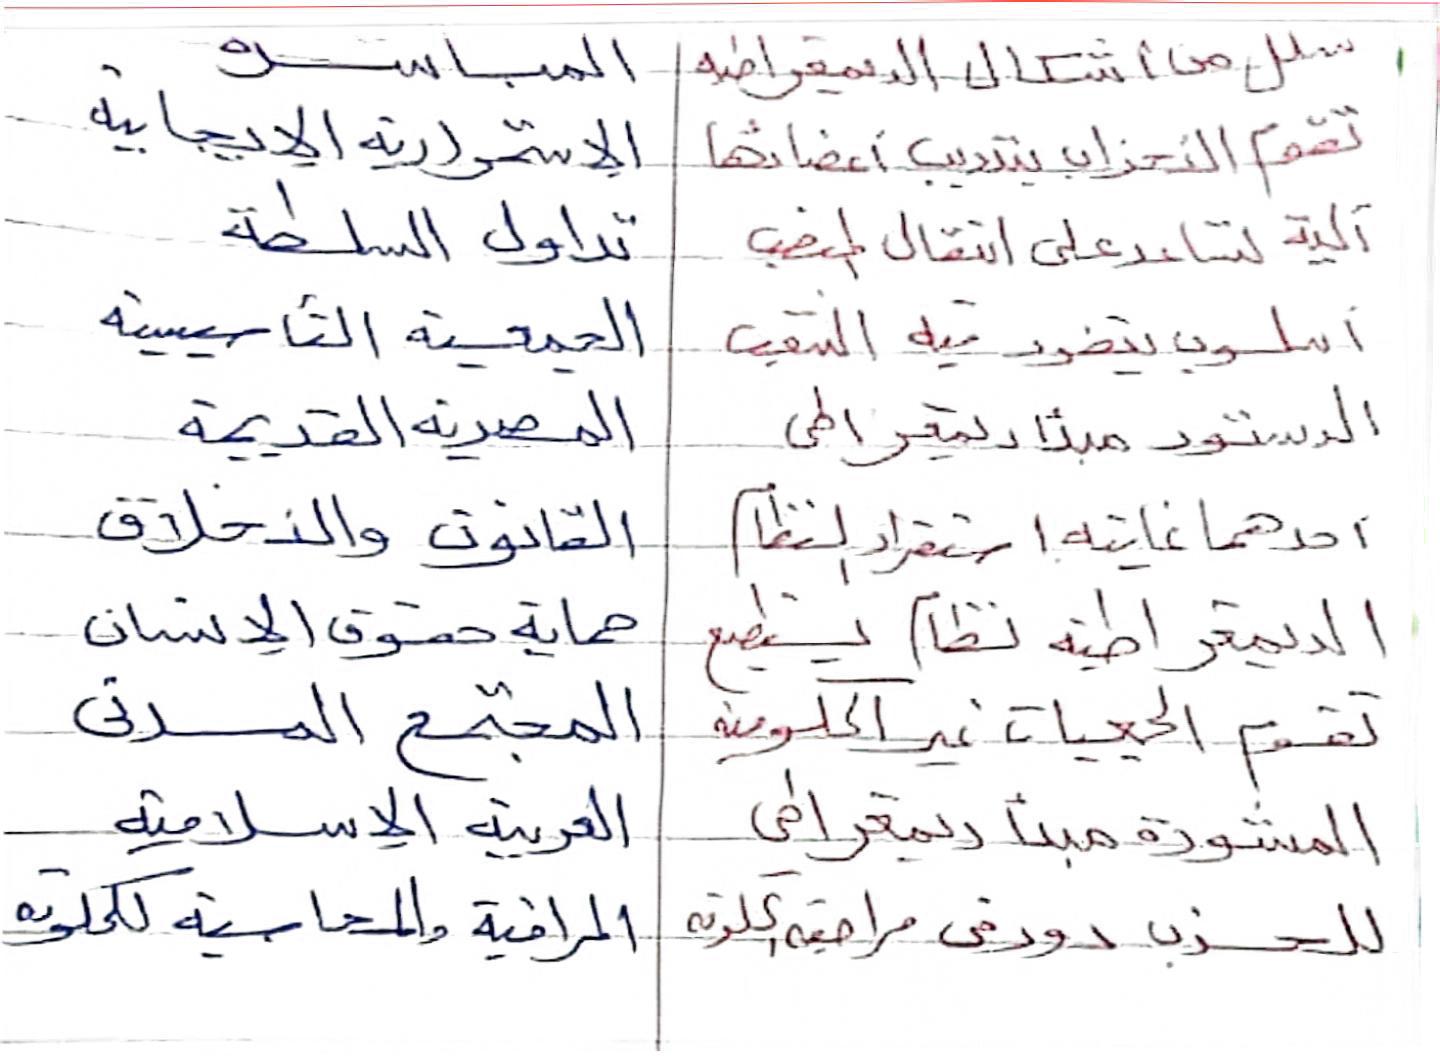 شكل من أشكال الديمقراطية المباشرة
تقوم الأحزاب بتدريب أعضائها الاستمرارية الإيجابية
آلية تساعد على انتقال المنصب تداول السلطة
أسلوب ينفرد فيه الشعب الجمعية التأسيسية
الدستور مبدأ ديمقراطى المصرية القديمة
أحدهما غايته استقرار النظام القانون والأخلاق
الديمقراطية نظام يستطيع حماية حقوق الإنسان
تقوم الجمعيات غير الحكومية المجتمع المدنى
المشورة مبدأ ديمقراطى العربية الإسلامية
للحزب دور فى مراقبة الحكومة المراقبة والمحاسبة للحكومة